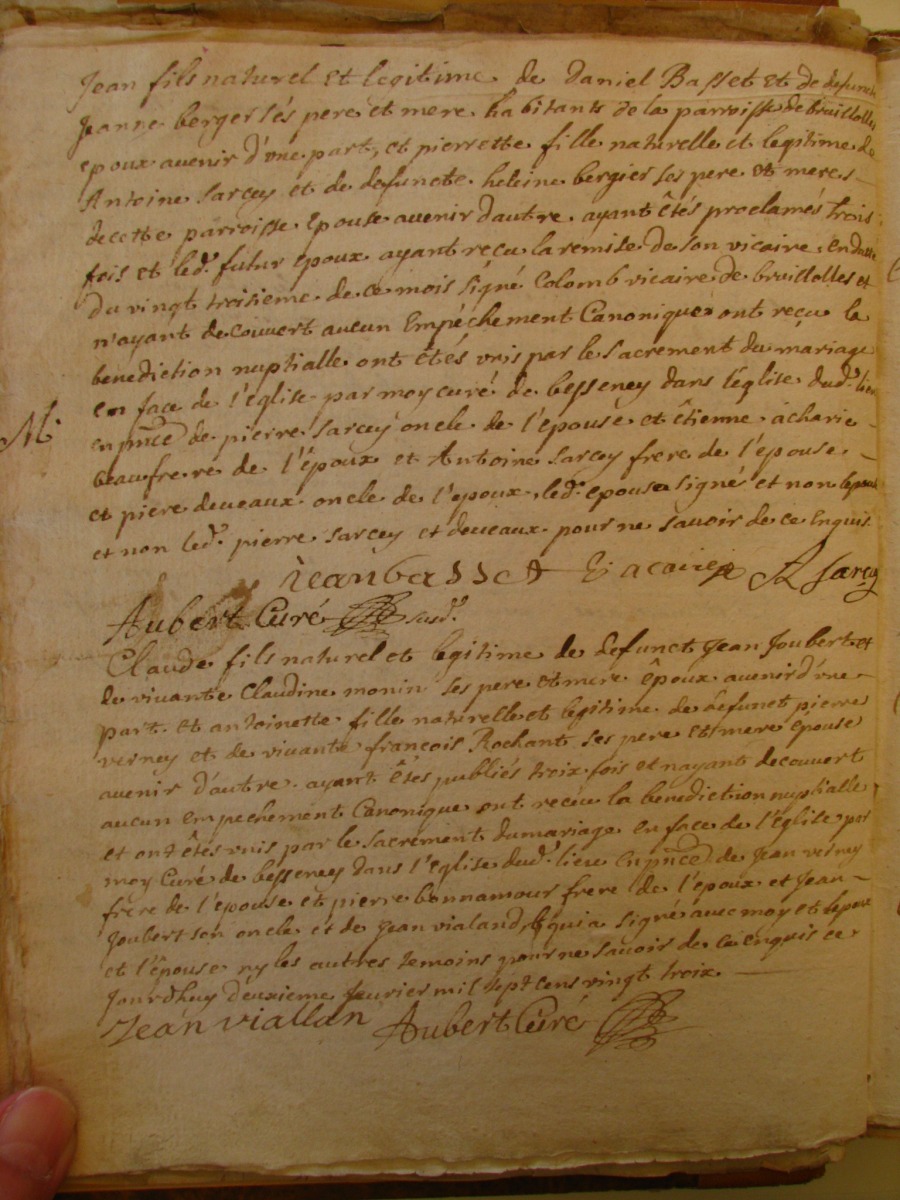 Jean fils naturel et legitime de Daniel Basset et de defuncte
Jeanne berger sés pere et mere habitants de la parroisse de bruillolles
epoux avenir d'une part, et pierrette fille naturelle et legitime de
Antoine Sarcey et de defuncte heleine bergier ses pere et meres
de cette parroisse Epouse avenir dautre ayant êtés proclamés trois
fois et led. futur epoux ayant recu la remise de son vicaire en datte
du vingt troisieme de ce mois signé Colomb vicaire de bruillolles et
n'ayant decouvert aucun Empêchement Canonique ont reçu la
benediction nuptialle ont êtés unis par le sacrement du mariage
en face de l'église par moy curé de besseney dans l'église dud. lieu
M. en pnce de pierre Sarcey oncle de l'epouse et êtienne acharie
beaufrere de l'époux et Antoine Sarcey frere de l'epouse
et piere deveaux oncle de l'epoux, led. epoux a signés et non lepouse
et non led. pierre Sarcey et deveaux pour ne savoir de ce Enquis
iean basset E acarie A Sarcey
Aubert Curé susd.
Claude fils naturel et legitime de defunct Jean Joubert et
de vivante Claudine monin ses pere et mere êpoux avenir d'une
part et antoinette fille naturelle et legitime de defunct pierre
verney et de vivante françois Rochant ses pere et mere epouse
avenir d'autre ayant êtes publiés troix fois et nayant decouvert
aucun empechement Canonique ont recëu la benediction nuptialle
et ont êtés unis par le sacrement du mariage en face de l'église par
moy Curé de besseney dans l'Eglise dud. lieu en pnce de Jean verney
frere de l'epouse et pierre bonnamour frere de l'epoux et Jean
Joubert son oncle et de Jean vialand, qui a signé avec moy et
et l'êpouse ny les autres temoins pour ne savoir de ce enquis ce
Jourdhuy deuxieme fevrier mil sept cens vingt troix
Jean viallan Aubert Curé